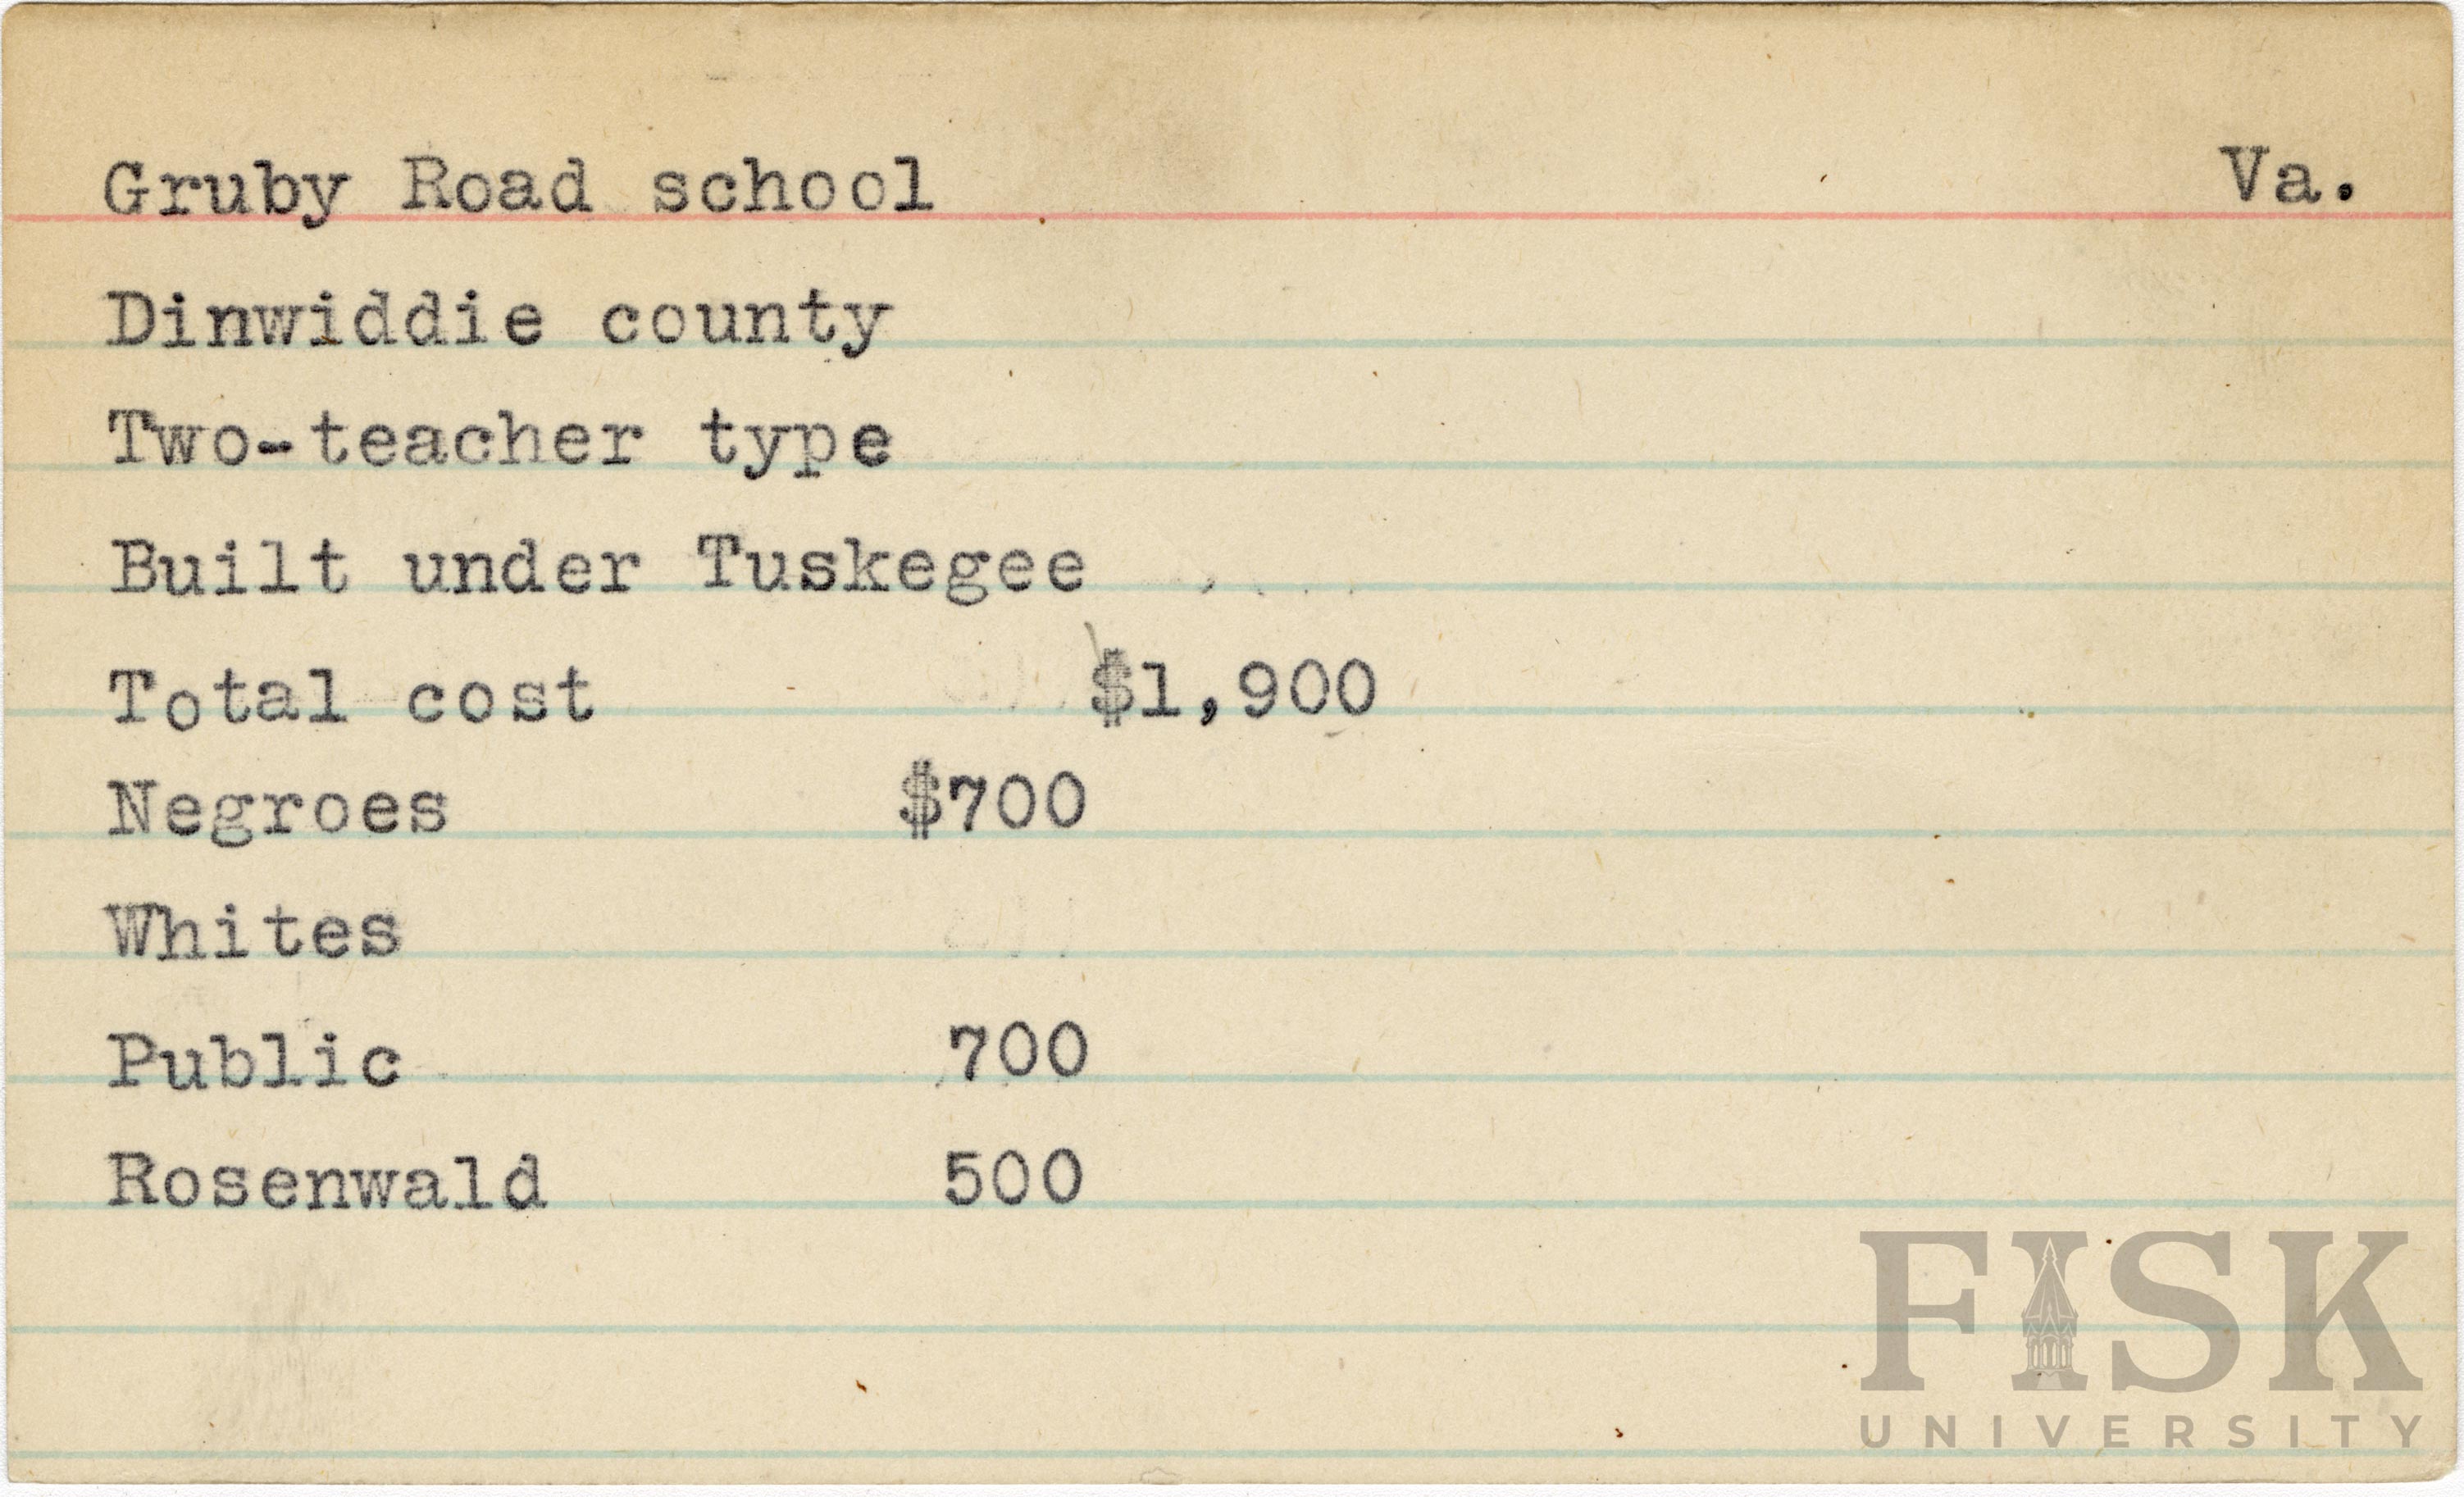 Gruby Road school Va.
Dinwiddie county
Two-teacher type
Built under Tuskegee
Total cost $1,900
Negroes $700
Whites
Public 700
Rosenwald 500
FISK
UNIVERSITY